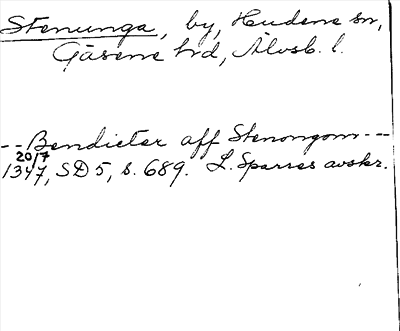 Stenunga, by, Hudene sn,
Gäsene hd, Älvsb. l.
-- Bendicter aff Stenongom --
20/7
1347, SD 5, s. 689. L. Sparres avskr.